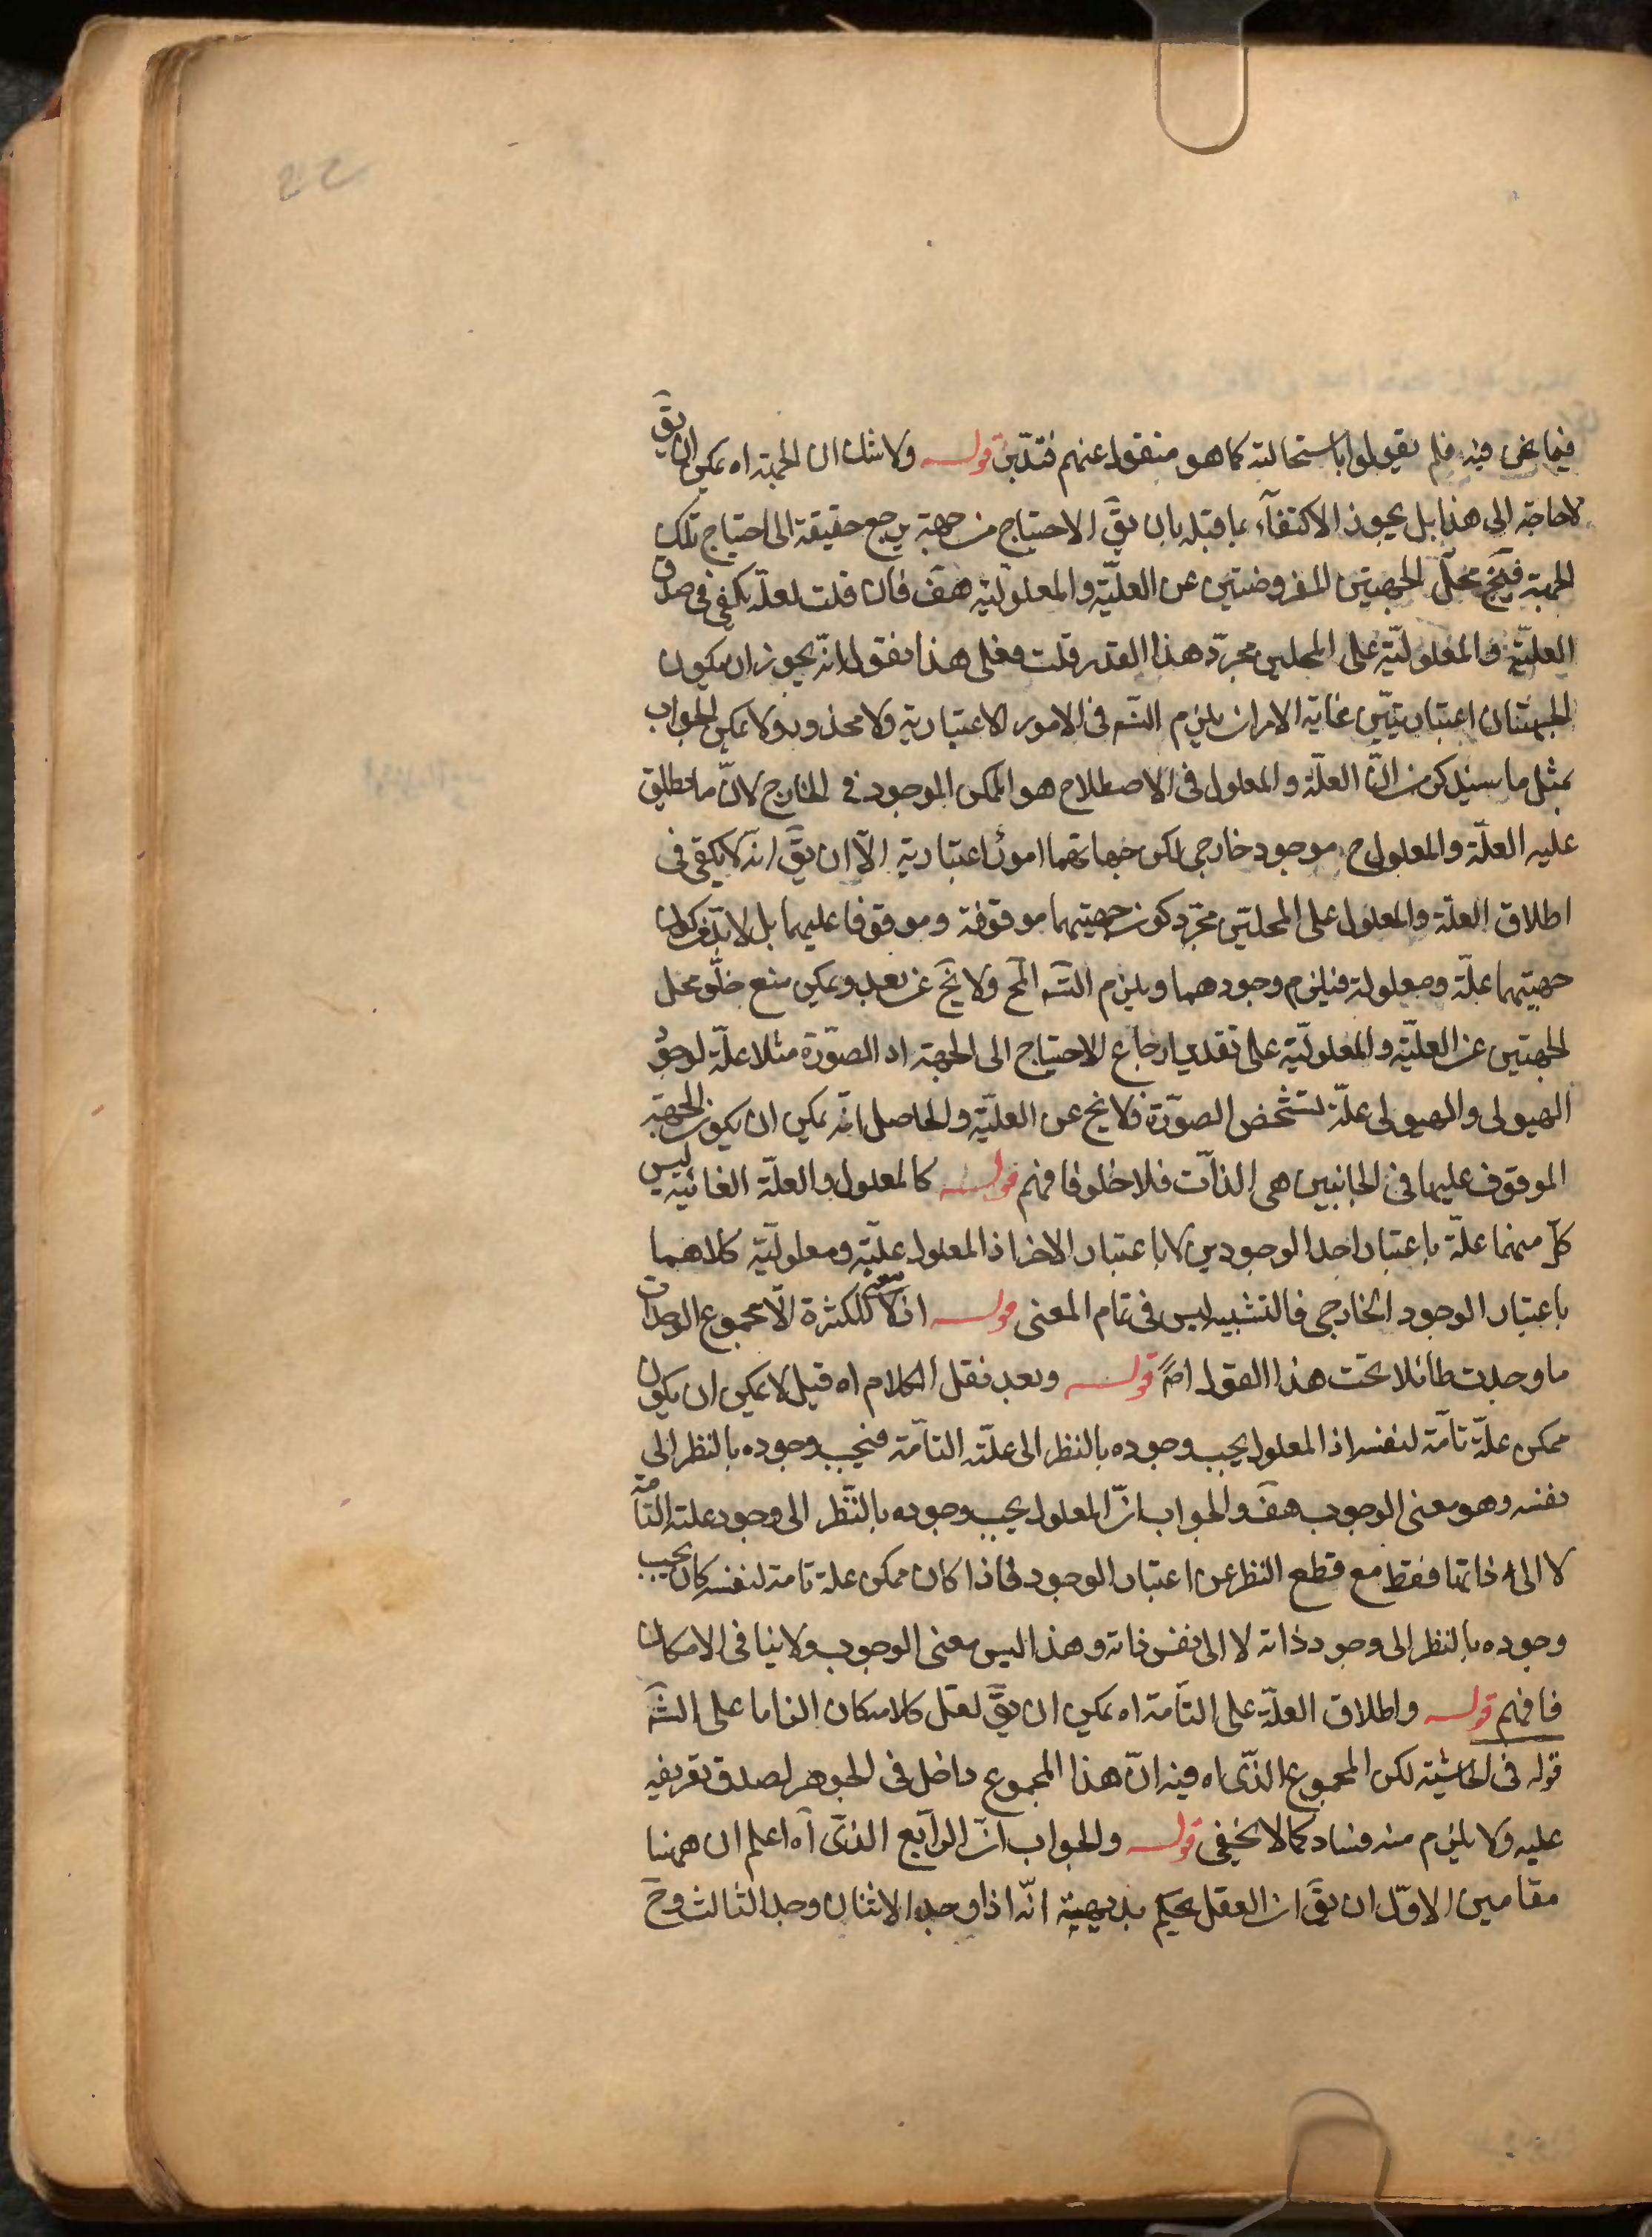 فيما نحن فيه فلم يقولوا باستحالته كما هو منقول عنهم فتدبّر قوله ولا شك ان الجهة اه يمكن ان يقَ
لا حاجة الى هذا بل يجوز الاكتفآء بما قبله بان يقَ الاحتياج من جهة يرجع حقيقة الى احتياج تلك
الجهة فيخ محلّ الجهتين المفروضتين عن العليّة والمعلوليّة هف فان قلت لعلّه يكفى فى صدق
العليّة والمعلوليّة على المحلين مجرّد هذا القدر قلت فعلى هذا نقول انّه يجوز ان يكون
الجهتان اعتباريتين غاية الامر ان يلزم التسَ فى الامور الاعتبارية ولا محذور ولا يمكن الجواب
بمثل ما سيذكر من انّ العلّة والمعلول فى الاصطلاح هو الممكن الموجود فى الخارج لانّ ما يطلق
عليه العلّة والمعلول ح موجود خارجى لكن جهاتهما امور اعتبارية الّا ان يقَ انّه لا يكفى فى
اطلاق العلّة والمعلول على المحلّين مجرّد كون جهتيهما موقوفة وموقوفا عليهما بل لا بدّ من كون
جهتيهما علّة ومعلولة فيلزم وجودهما ويلزم التسَ المح ولا يخ عن بعد ويمكن منع خلّو محل
الجهتين عن العليّة والمعلوليّة على تقدير ارجاع الاحتياج الى الجهة اذ الصّورة مثلا علّة لوجود
الهيولى والهيولى علّة لتشخص الصّورة فلا يخ عن العليّة والحاصل انّه يمكن ان يكون الجهة
الموقوف عليها فى الجانبين هى الذات فلا خلو فافهم قوله كالمعلول والعلّة الغائية ليس
كلّ منهما علّة باعتبار احد الوجودين لا باعتبار الاخر اذ المعلول عليّته ومعلوليّته كلاهما
باعتبار الوجود الخارجى فالتشبيه ليس فى تمام المعنى قوله اذ لا معنى للكثرة الّا مجموع الوحدات
ما وجدت طائلا تحت هذا القول اصً قوله وبعد نقل الكلام اه قيل لا يمكن ان يكون
ممكن علّة تامّة لنفسه اذ المعلول يجب وجوده بالنظر الى علّته التامّة فيجب وجوده بالنظر الى
نفسه وهو معنى الوجوب هف والجواب انّ المعلول يجب وجوده بالنّظر الى وجود علته التامّة
لا الى ذاتها فقط مع قطع النظر عن اعتبار الوجود فاذا كان ممكن علة تامة لنفسه كان يجب
وجوده بالنظر الى وجود ذاته لا الى نفس ذاته وهذا ليس معنى الوجوب ولا ينافى الامكان
فافهم قوله واطلاق العلّة على التامّة اه يمكن ان يقَ لعل كلامه كان الزاما على الشَه
قوله فى الحاشية لكن المجموع الذّى اه فيه انّ هذا المجموع داخل فى الجوهر لصدق تعريفه
عليه ولا يلزم منه فساد كما لا يخفى قوله والجواب انّ الرابع الذّى آه اعلم ان ههنا
مقامين الاوّل ان يقَ ان العقل يحكم بديهية انّه اذا وجد الاثنان وجد الثالث وحَ